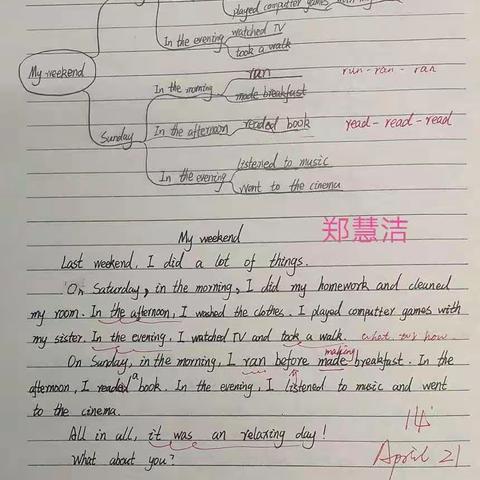 played computter games
In the evening watched TV
took a walk
My weekend
In the morning ran run-ran-ran
made breakfast
Sunday
In the afternoon readed book read-read-read
In the evening listened to music
Went to the cinema
郑慧洁
My weekend
Last weekend, I did a lot of things.
On Saturday, in the morning, I did my homework and cleaned
my room. In the afternoon, I washed the clothes. I played computter games with
my sister. In the evening, I watched TV and took a walk.
making
On Sunday, in the morning, I ran before made breakfast. In the
afternoon, I readed a book. In the evening, I listened to music and went
to the cinema.
All in all, it was an relaxing day!
What about you?
14'
April 21